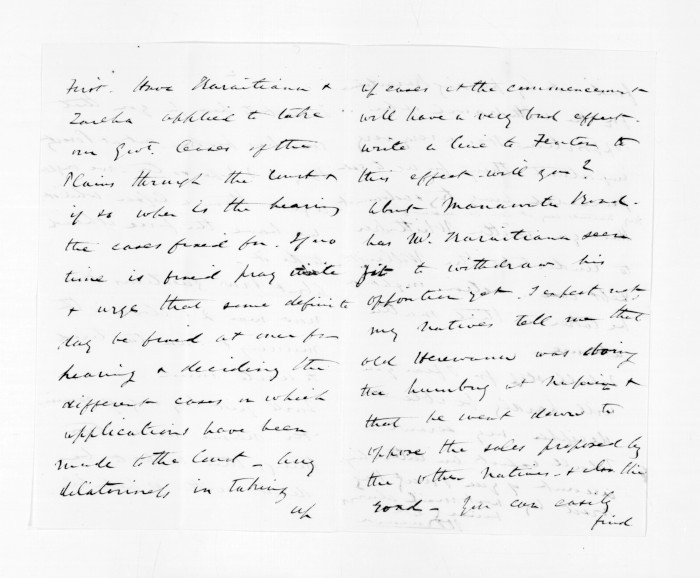 First. Have Karaitiana &
Tareha applied to take
our Govt. leases of the
Plains through the Court &
if so when is the hearing
the cases fixed for. If no
time is fixed pray write
& urge that some definite
day be fixed at once for
hearing & deciding the
different cases in which
applications have been
made to the Court _ Any
dilatoriness in taking
up
of cases at the commencement
will have a very bad effect.
write a line to Fenton to
this effect will you?
About Manawatu Road.
has Mr. Karaitiana seen
fit to withdraw his
opposition yet. I expect not,
my Natives tell me that
old was doing
the humbug at Napier &
that he went down to
oppose the sales proposed by
the other Natives & also the
road _ You can easily
find